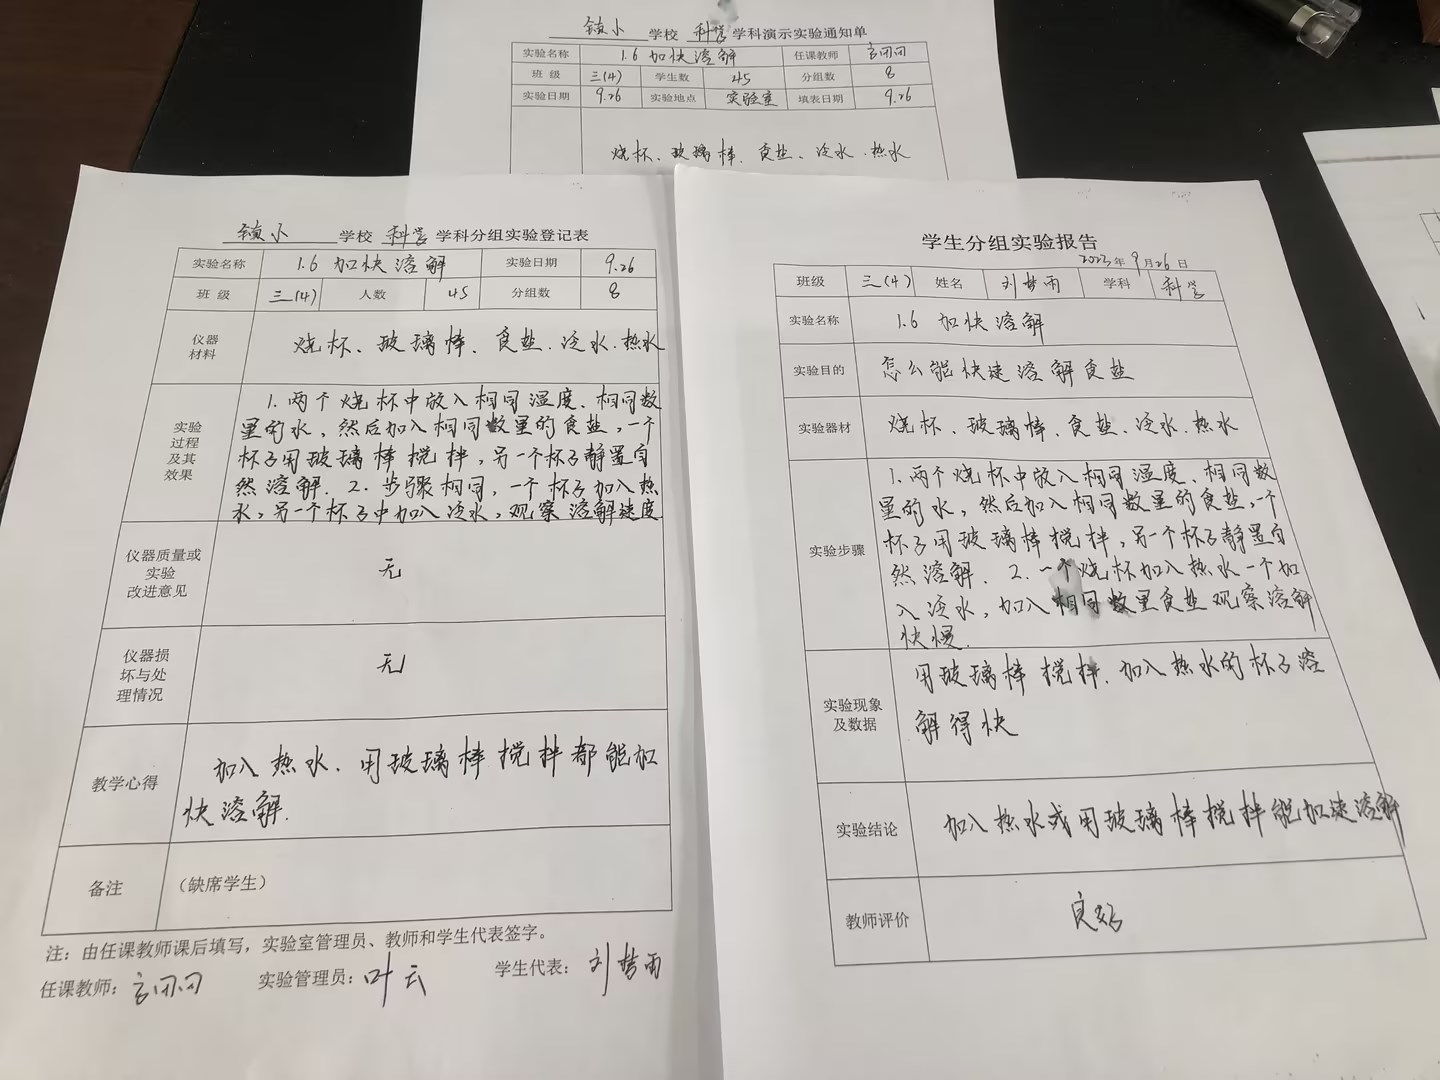 镇小 学校 科学 学科演示实验通知单
实验名称 1.6 加快溶解 任课教师
班 级 三(4) 学生数 45 分组数 8
实验日期 9.26 实验地点 实验室 填表日期 9.26
烧杯、玻璃棒、食盐、冷水、热水
镇小 学校 科学 学科分组实验登记表
实验名称 1.6 加快溶解 实验日期 9.26
班 级 三(4) 人数 45 分组数 8
仪器
材料
烧杯、玻璃棒、食盐、冷水、热水
实验
过程
及其
效果
1.两个烧杯中放入相同温度、相同数
量的水，然后加入相同数量的食盐，一个
杯子用玻璃棒搅拌，另一个杯子静置自
然溶解. 2.步骤相同，一个杯子加入热
水，另一个杯子中加入冷水，观察溶解速度
仪器质量或
实验
改进意见
无
仪器损
坏与处
理情况
无
教学心得
加入热水、用玻璃棒搅拌都能加
快溶解.
备注 （缺席学生）
注：由任课教师课后填写，实验室管理员、教师和学生代表签字。
任课教师： 实验管理员：叶云 学生代表：刘梦雨
学生分组实验报告
2023年9月26日
班级 三(4) 姓名 刘梦雨 学科 科学
实验名称 1.6 加快溶解
实验目的 怎么能快速溶解食盐
实验器材 烧杯、玻璃棒、食盐、冷水、热水
实验步骤
1.两个烧杯中放入相同温度、相同数
量的水，然后加入相同数量的食盐，一个
杯子用玻璃棒搅拌，另一个杯子静置自
然溶解. 2.一个烧杯加入热水一个加
入冷水，加入相同数量食盐观察溶解
快慢.
实验现象
及数据
用玻璃棒搅拌、加入热水的杯子溶
解得快
实验结论 加入热水或用玻璃棒搅拌能加速溶解
教师评价 良好